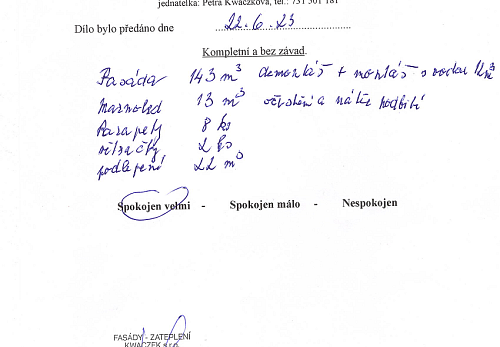 jednatelka: Petra Kwaczková, tel.: 731 501 181
Dílo bylo předáno dne 22.6.23
Kompletní a bez závad.
Fasáda 143 m³ demontáš + montáš
Marmolid 13 m³ očištění a nátěr podbití
Parapety 8 ks
větračky 2 ks
podlepení 22 m³
Spokojen velmi - Spokojen málo - Nespokojen
FASÁDY - ZATEPLENÍ
KWACZEK